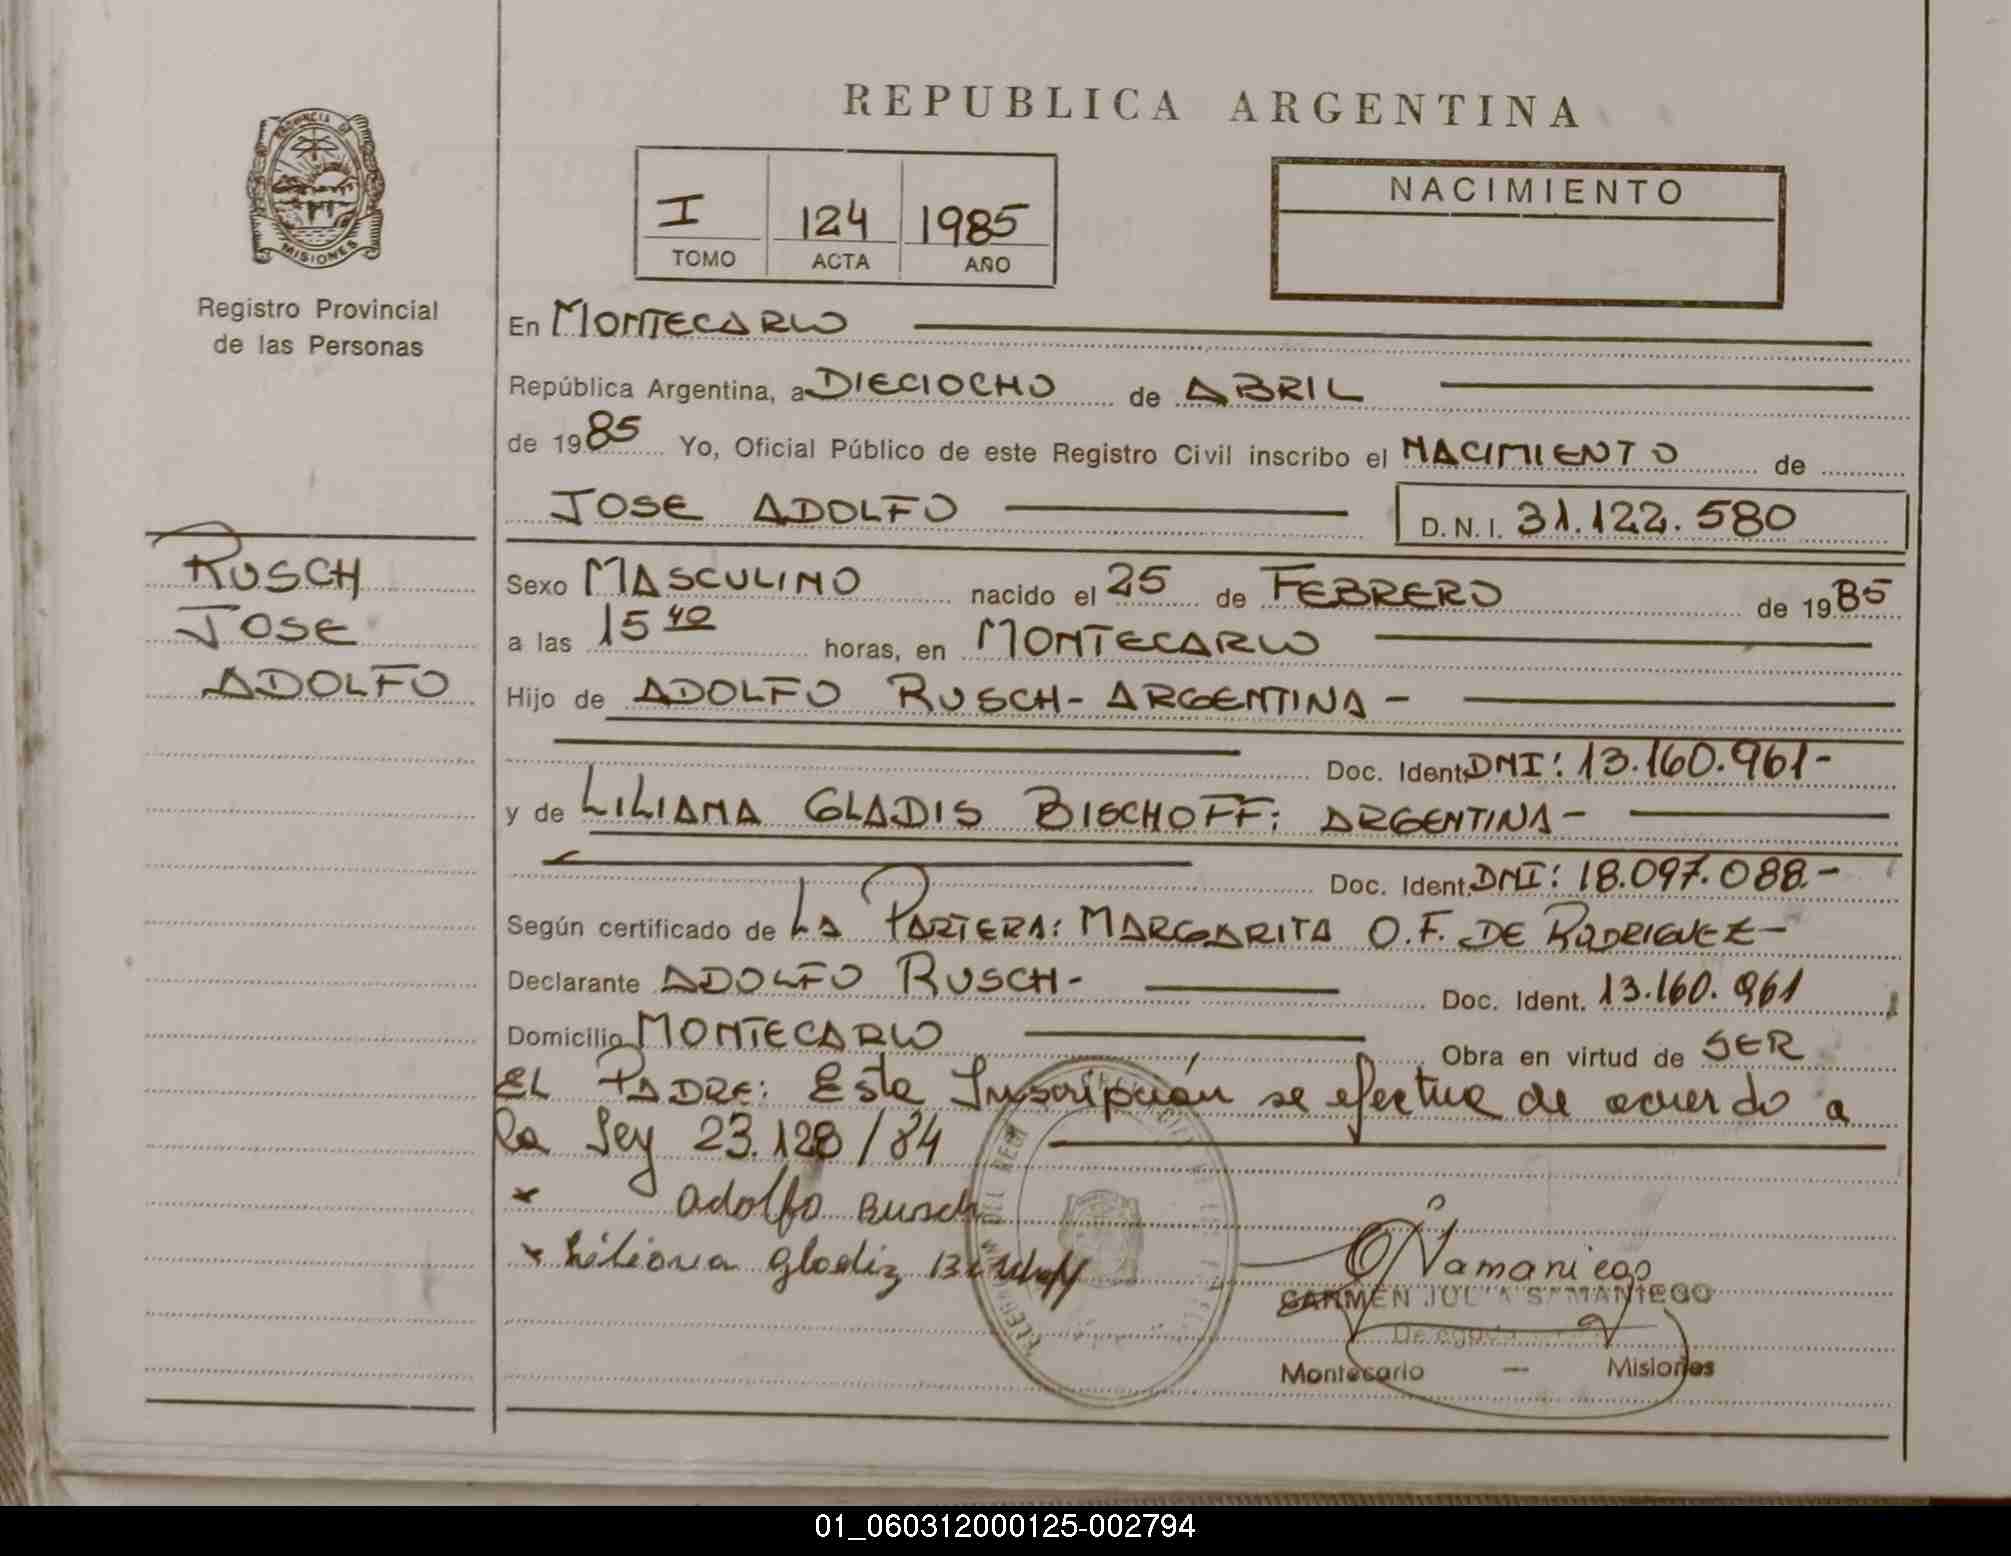 REPUBLICA ARGENTINA
PROVINCIA DE
MISIONES
Registro Provincial
de las Personas
I 124 1985
TOMO ACTA AÑO
NACIMIENTO
En MONTECARLO
República Argentina, a DIECIOCHO de ABRIL
de 1985 Yo, Oficial Público de este Registro Civil inscribo el NACIMIENTO de
JOSE ADOLFO D. N. I. 31.122.580
RUSCH
JOSE
ADOLFO
Sexo MASCULINO nacido el 25 de FEBRERO de 1985
a las 15 40 horas, en MONTECARLO
Hijo de ADOLFO RUSCH - ARGENTINA -
Doc. Ident. DNI: 13.160.961-
y de LILIANA GLADIS BISCHOFF: ARGENTINA -
Doc. Ident. DNI: 18.097.088.-
Según certificado de LA PARTERA: MARGARITA O.F. DE RODRIGUEZ-
Declarante ADOLFO RUSCH- Doc. Ident. 13.160.961
Domicilio MONTECARLO Obra en virtud de SER
EL PADRE: Esta Inscripción se efectua de acuerdo a
la Ley 23.128/84
x Adolfo Rusch
x Liliana Gladiz Bischoff
CARMEN JULIA SAMANIEGO
Montecarlo — Misiones
01_060312000125-002794